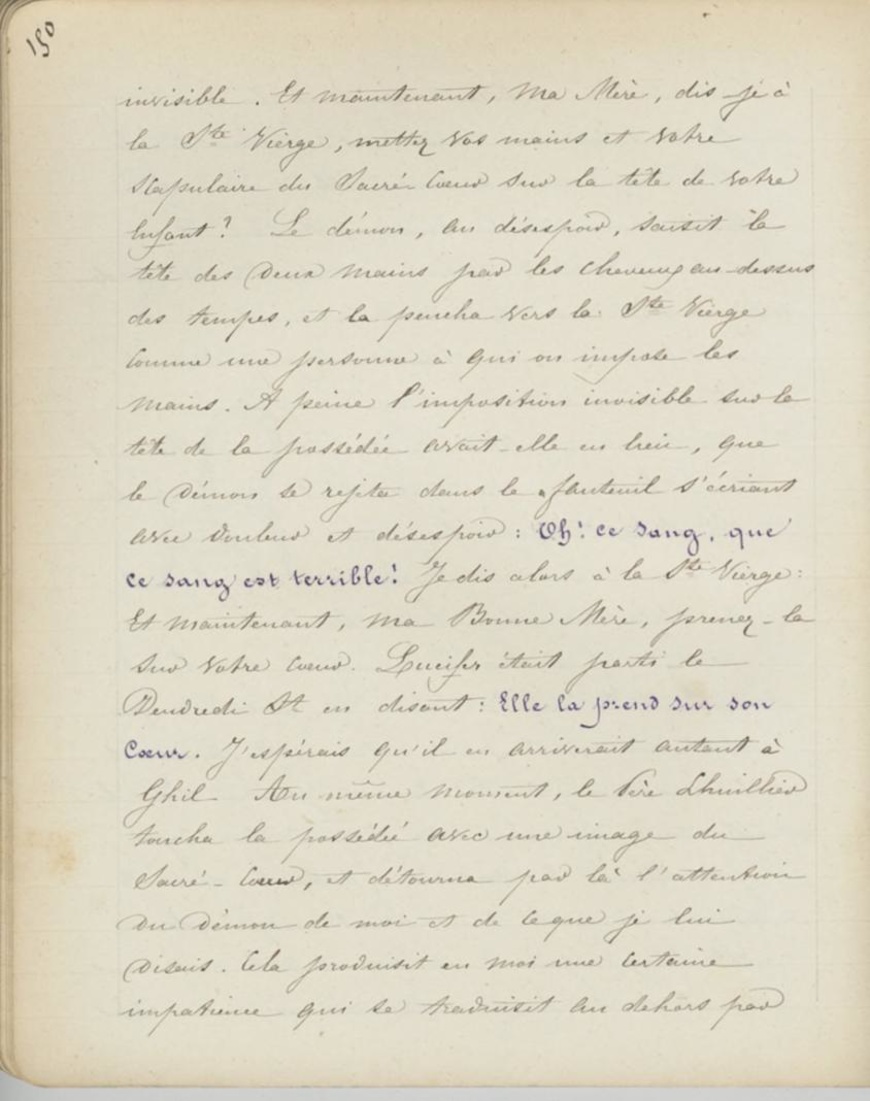 150
invisible. Et maintenant, ma Mère, dis-je à
la Ste Vierge, mettez vos mains et votre
scapulaire du Sacré Cœur sur la tête de votre
Enfant! Le démon, au désespoir, saisit la
tête des deux mains par les cheveux au-dessus
des tempes, et la pencha vers la Ste Vierge
comme une personne à qui on impose les
mains. A peine l'imposition invisible sur la
tête de la possédée avait-elle eu lieu, que
le démon se rejeta dans le fauteuil s'écriant
avec douleur et désespoir : Oh! ce sang, que
ce sang est terrible! Je dis alors à la Ste Vierge :
Et maintenant, ma Bonne Mère, prenez-la
sur votre cœur. Lucifer était parti le
Vendredi St en disant : Elle la prend sur son
Cœur. J'espérais qu'il en arriverait autant à
Ghil Au même moment, le Père Lhuillier
toucha la possédée avec une image du
Sacré-Cœur, et détourna par là l'attention
du démon de moi et de ce que je lui
disais. Cela produisit en moi une certaine
impatience qui se traduisit au dehors par